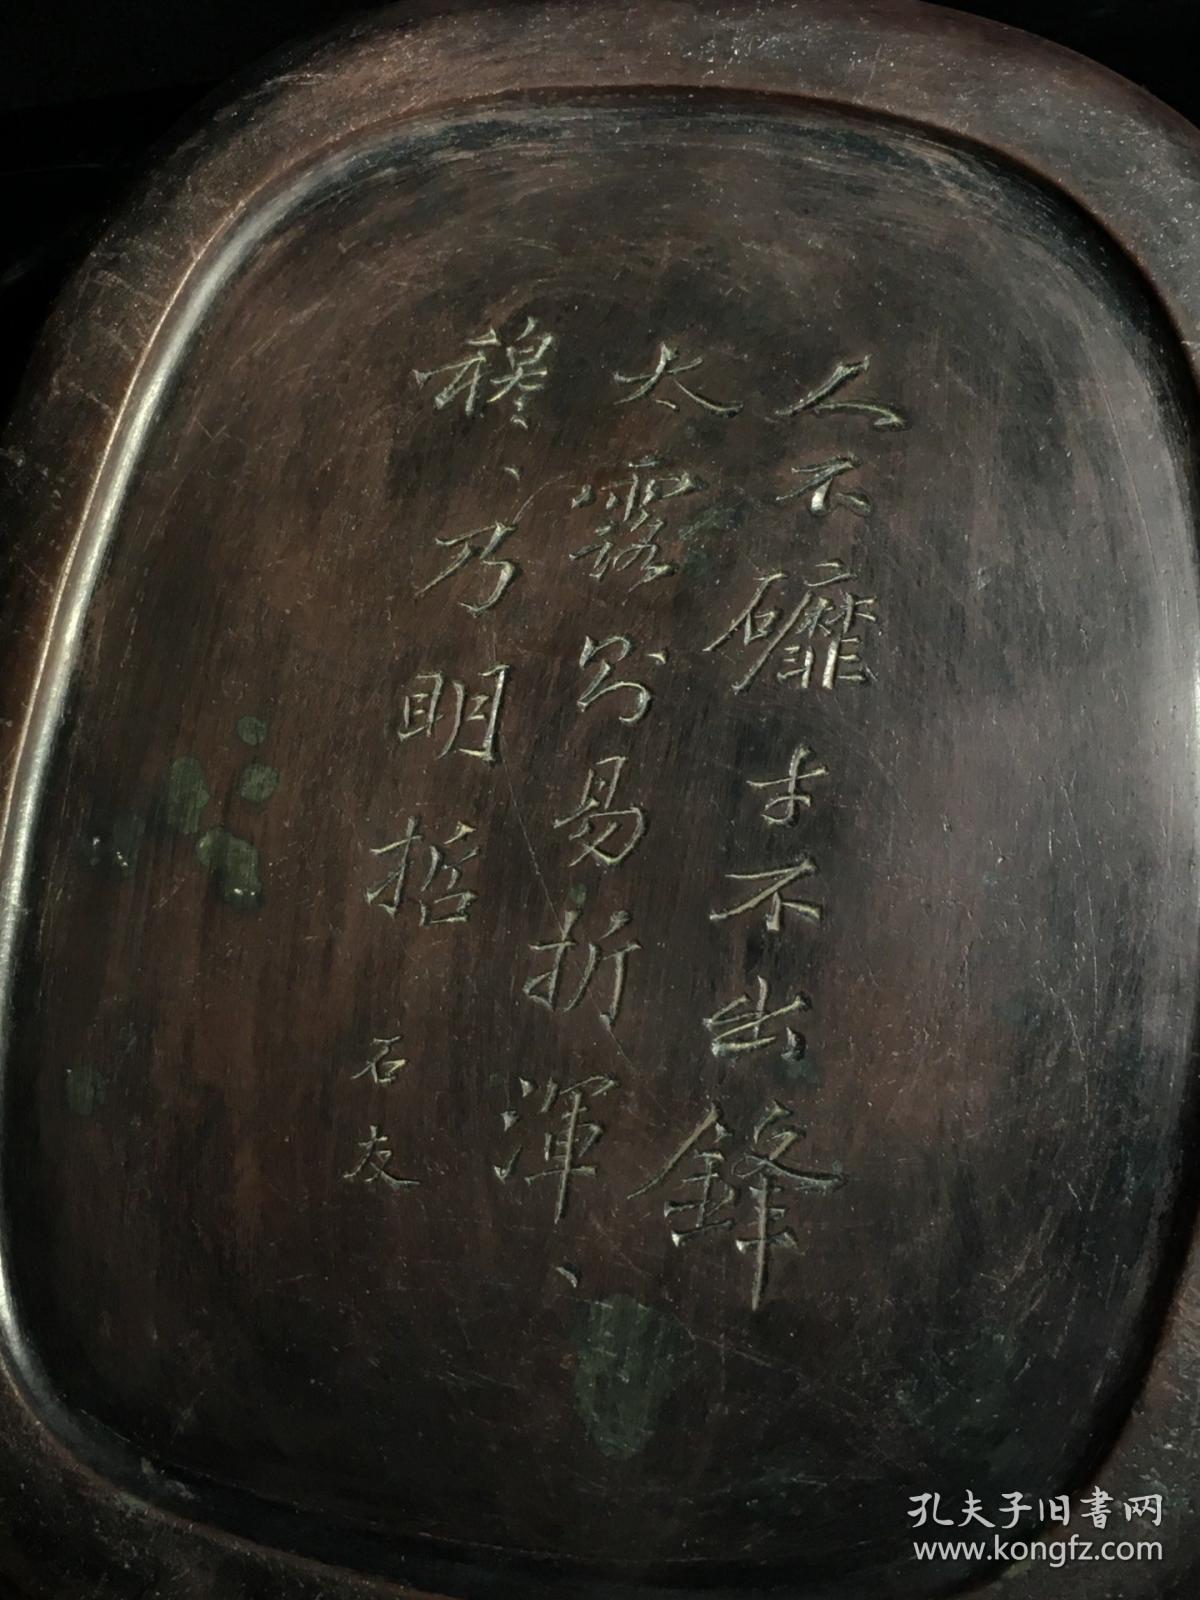 人不礳才不出鋒
太露則易折渾、
穆、乃明哲
石友
孔夫子旧書网
www.kongfz.com